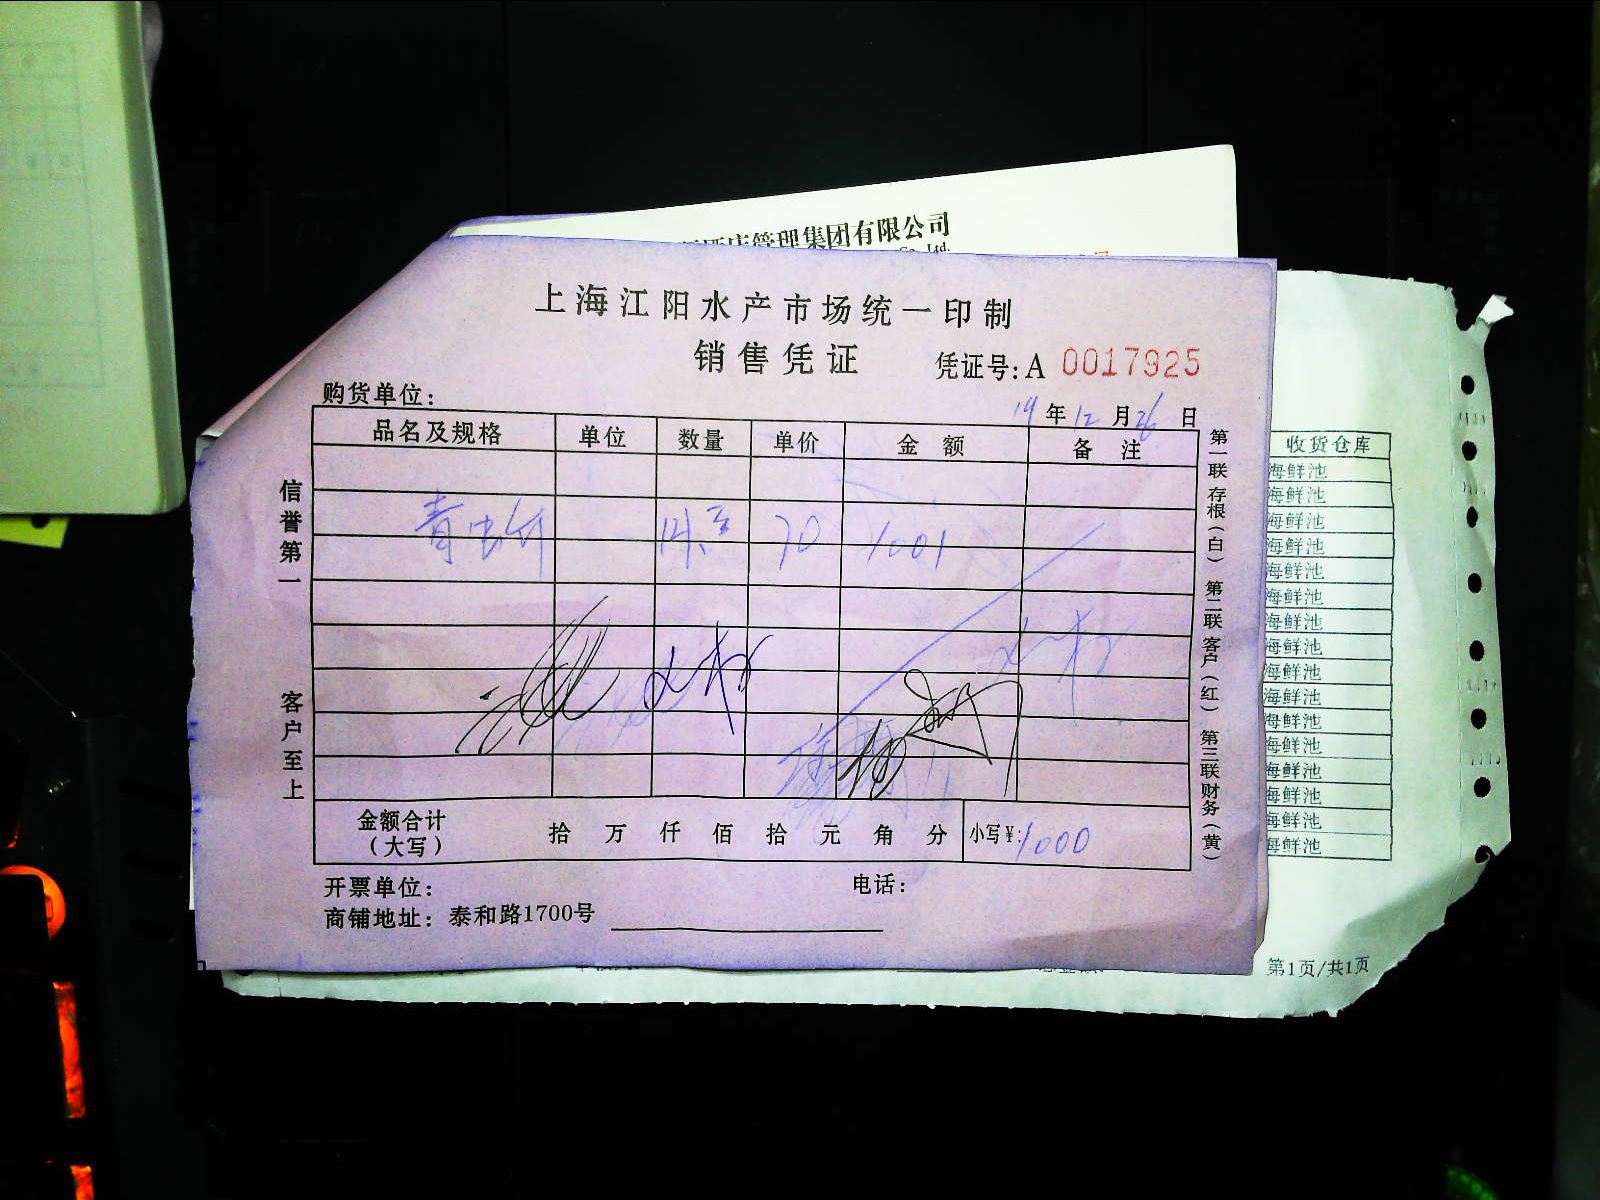 店管理集团有限公司
Co., Ltd.
上海江阳水产市场统一印制
销售凭证
凭证号:A 0017925
购货单位:
19年12月26日
品名及规格 单位 数量 单价 金额 备注
70 1001
金额合计(大写) 拾 万 仟 佰 拾 元 角 分 小写¥:1000
开票单位: 电话:
商铺地址: 泰和路1700号
信誉第一
客户至上
第一联存根(白) 第二联客户(红) 第三联财务(黄)
收货仓库
海鲜池
海鲜池
海鲜池
海鲜池
海鲜池
海鲜池
海鲜池
海鲜池
海鲜池
海鲜池
海鲜池
海鲜池
海鲜池
海鲜池
海鲜池
海鲜池
第1页/共1页